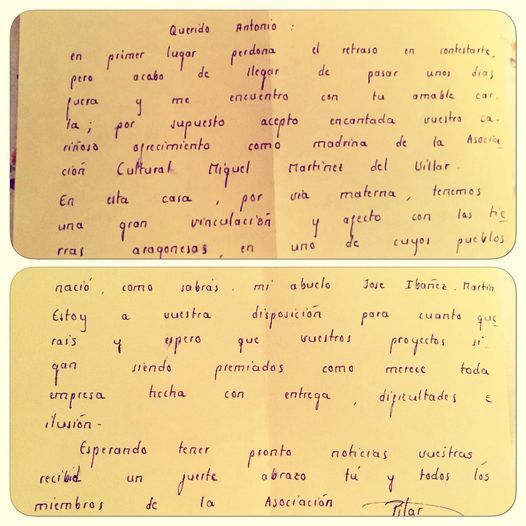 Querido Antonio :
en primer lugar perdona el retraso en contestarte,
pero acabo de llegar de pasar unos dias
fuera y me encuentro con tu amable car-
ta; por supuesto acepto encantada vuestro ca-
riñoso ofrecimiento como madrina de la Asocia-
ción Cultural Miguel Martínez del Villar.
En esta casa, por via materna, tenemos
una gran vinculación y afecto con las tie-
rras aragonesas, en uno de cuyos pueblos
nació, como sabrás, mi abuelo Jose Ibañez-Martín
Estoy a vuestra disposición para cuanto que-
rais y espero que vuestros proyectos si-
gan siendo premiados como merece toda
empresa hecha con entrega, dificultades e
ilusión.
Esperando tener pronto noticias vuestras
recibid un fuerte abrazo tú y todos los
miembros de la Asociación Pilar